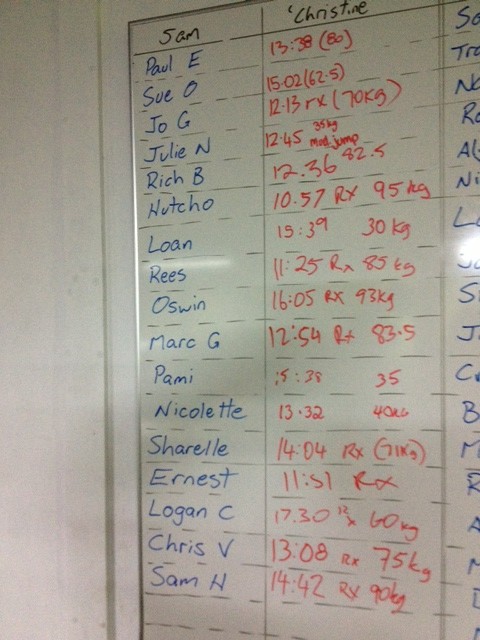 5am 'Christine
Paul E 13:38 (80)
Sue O 15:02 (62.5)
Jo G 12.13 rx (70kg)
Julie N 12.45 35kg mod jump
Rich B 12.36 82.5
Hutcho 10.57 Rx 95 kg
Loan 15:39 30 kg
Rees 11:25 Rx 85 kg
Oswin 16:05 Rx 93kg
Marc G 12:54 Rx 83.5
Pami 15:38 35
Nicolette 13.32 40kg
Sharelle 14:04 Rx (71kg)
Ernest 11:51 Rx
Logan C 17.30 60kg
Chris V 13:08 Rx 75kg
Sam H 14:42 Rx 90kg